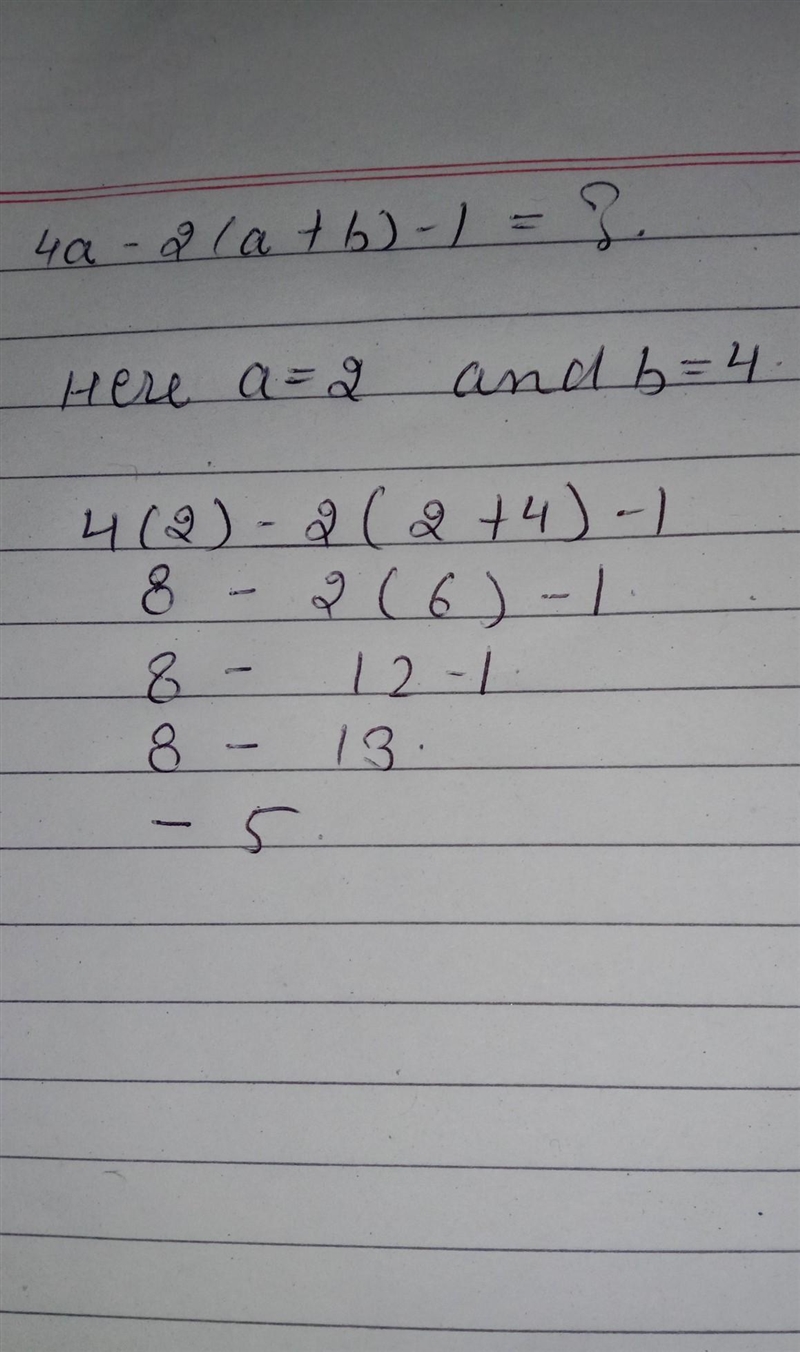 4a - 2(a+b) - 1 = ?.
Here a=2 and b=4.
4(2) - 2(2+4) - 1
8 - 2(6) - 1.
8 - 12 - 1.
8 - 13.
- 5.